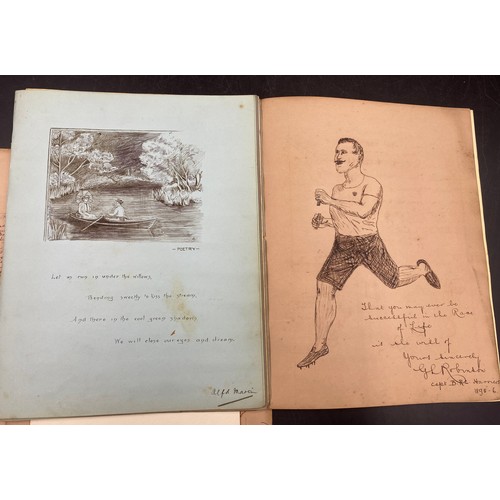 —POETRY—
Let us row in under the willows,
Bending sweetly to kiss the stream,
And there in the cool green shadows
We will close our eyes and dream.
Alfd
That you may ever be
successful in the Race
of Life
is the wish of
Yours sincerely
G L Robinson
Capt